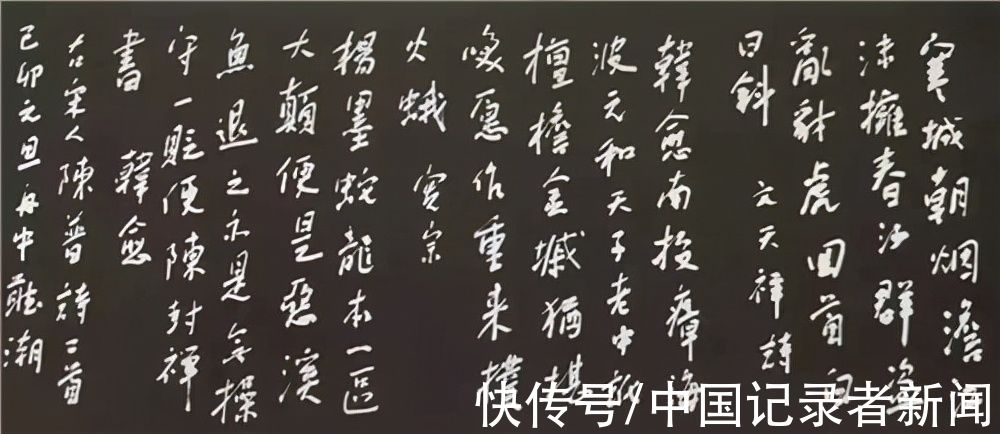 寒城朝烟澹
沫擁春沙群盗
亂豺虎回首白
日斜 文天祥詩
韓愈南投瘴海
波元和天子老中
檀檐金猶堪
喚愿作重来撲
火蛾 憲宗
楊墨蛇龍本一區
大顛便是惡溪
魚退之不是無操
守一貶便陳封禪
書 韓愈
右宋人陳普詩二首
己卯元旦舟中聽潮
快传号/中国记录者新闻